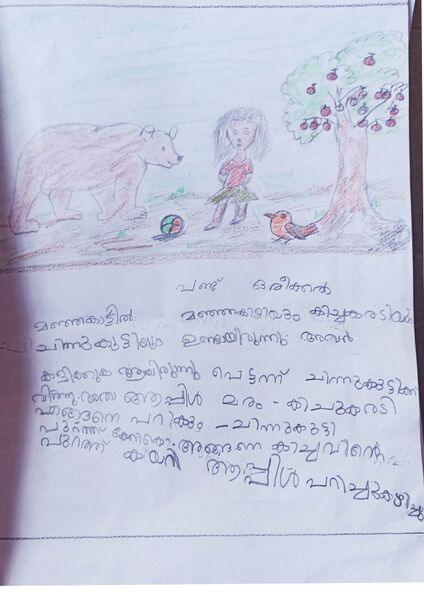 പണ്ട് ഒരിക്കൽ
മഞ്ഞകാട്ടിൽ മഞ്ഞക്കിളിയും കിച്ചുകരടിയും
ചിന്നുക്കുട്ടിയും ഉണ്ടായിരുന്നു അവർ
കളിക്കുക ആയിരുന്നു പെട്ടന്ന് ചിന്നുക്കുട്ടിക്ക്
ആപ്പിൾ മരം - കിച്ചുകരടി
എങ്ങനെ പറിക്കും - ചിന്നുക്കുട്ടി
പുറത്ത് അങ്ങനെ കിച്ചുവിന്റെ
പുറത്ത് കയറി ആപ്പിൾ പറിച്ചുകഴിച്ചു